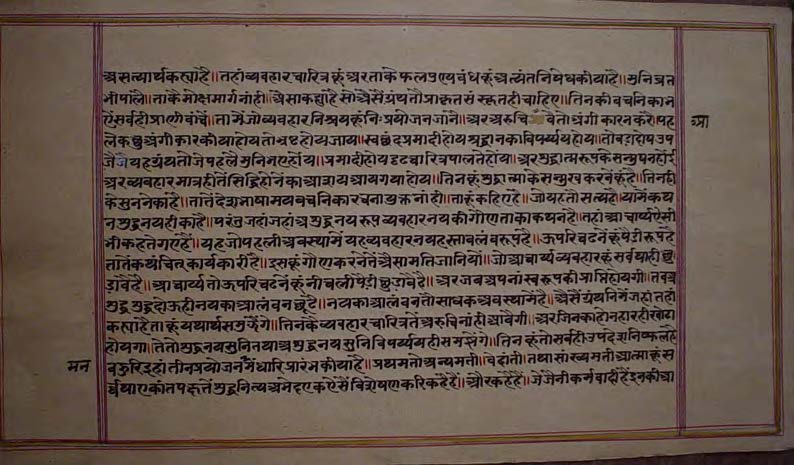 असत्यार्थकह्याहै॥तहांव्यवहारचारित्रकूंअरताकेफलपुण्यबंधकूंअत्यंतनिषेधकीयाहै॥मुनिव्रत
भीपालै॥ताकैमोक्षमार्गनांही॥ऐसाकह्याहैसोऐसेंग्रंथतौप्राकृतसंस्कृतहीचाहिए॥तिनकीवचनिकाभ
ऐंसर्वहीप्राणीवांचै॥तामैंजोव्यवहारनिश्चयकूंनिःप्रयोजनजांनै॥अरअरुचि वैतोअंगीकारनकरैपह
लेकछुअंगीकारकीयाहोयतोभ्रष्टहोयजाय॥स्वछंदप्रमादीहोयश्रद्धानकाविपर्ययहोय॥तोबडादोषउप
जैजेयहग्रंथतोजेपहलेमुनिभएहोंय॥प्रमादीहोयदृढचारित्रपालतेहोंय॥अरशुद्धात्मरूपकेसन्मुषनहोंई
अरव्यवहारमात्रहीतेंसिद्धिहोनेंकाआशयआयगयाहोय॥तिनकूंशुद्धात्माकेसन्मुखकरनेंकूंहै॥तिनही
केसुननेकाहै॥तातैंदेशभाषामयवचनिकारचनायुक्तनांही॥ताकूंकहिएहै॥जोयहतौसत्यहै॥यामैंकथ
नशुद्धनयहीकाहै॥परंतुजहांजहांअशुद्धनयरूपव्यवहारनयकीगौणताकाकथनहै॥तहांआचार्यऐसी
भीकहतेगएहैं॥यहजोपहलीअवस्थामैंयहव्यवहारनयहस्तावलंबरूपहै॥ऊपरिचढनेंकूंपैडीरूपहै
तातैंकथंचित्कार्यकारीहै॥इसकूंगौणकरनेंतेंऐसामतिजानियों॥जोआचार्यव्यवहारकूंसर्वथाहीछु
डावैहै॥आचार्यतोऊपरिचढनेंकूंनीचलीपैडीछुडावैहै॥अरजबअपनांस्वरूपकीप्राप्तिहोयगी॥तबअ
शुद्धशुद्धदोऊहीनयकाआलंबनछूटैहै॥नयकाआलंबनतोसाधकअवस्थामैंहै॥ऐसेंग्रंथनिमेंजहांतहां
कह्याहैताकूंयथार्थसमझैंगे॥तिनकैव्यवहारचारित्रतेंअरुचिनांहीआवैगी॥अरजिनकाहोनहारहीखोटा
होयगा॥तेतोशुद्धनयसुनितथाअशुद्धनयसुनिविपर्ययहीसमझेंगे॥तिनकूंतोसर्वहीउपदेशनिष्फलहै
बहुरिइहांतीनप्रयोजनमैंधारिप्रारंभकीयाहै॥प्रथमतोअन्यमती॥वेदांती॥तथासांख्यमतीआत्माकूंस
र्वथाएकांतपक्षतेंशुद्धनित्यअभेदएकऐसेंविशेषणकरिकहैहैं॥औरकहैहैं॥जेजैनीकर्मवादीहैंइनकीआ
मन
आ